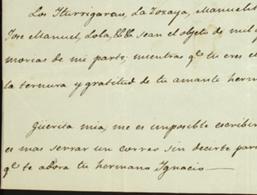 Los Iturrigarau, La Zozaya, Manuelit
Jose Manuel, Lola, &&. sean el objeto de mil
morias de mi parte, mientras qe. tu eres el
la ternura y gratitud de tu amante herm
Güerita mia, me es imposible escribir
es mas serrar un correo sin decirte par
qe. te adora tu hermano Ignacio